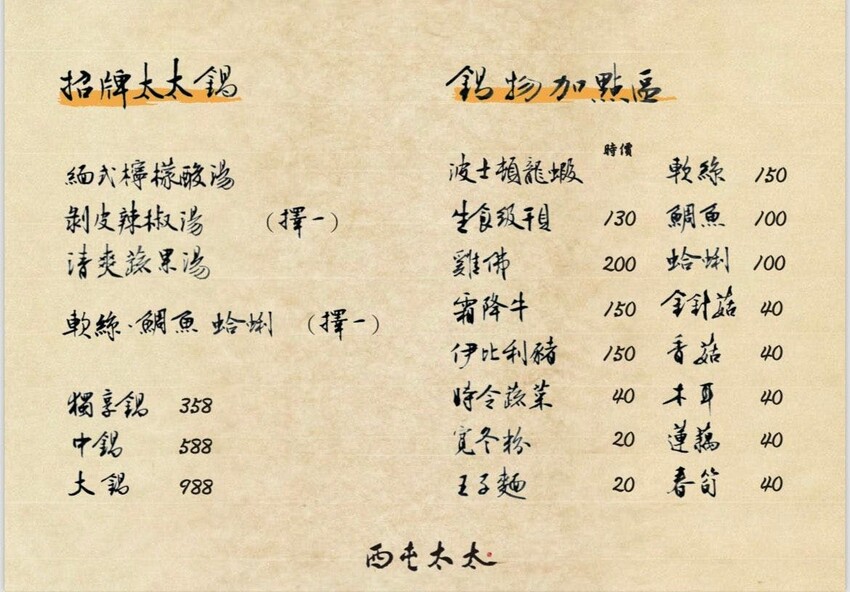 招牌太太鍋
緬式檸檬酸湯
剝皮辣椒湯 （擇一）
清爽蔬果湯
軟絲·鯛魚 蛤蜊 （擇一）
獨享鍋 358
中鍋 588
大鍋 988
鍋物加點區
波士頓龍蝦 時價
生食級干貝 130
雞佛 200
霜降牛 150
伊比利豬 150
時令蔬菜 40
寬冬粉 20
王子麵 20
軟絲 150
鯛魚 100
蛤蜊 100
金針菇 40
香菇 40
木耳 40
蓮藕 40
春筍 40
西屯太太